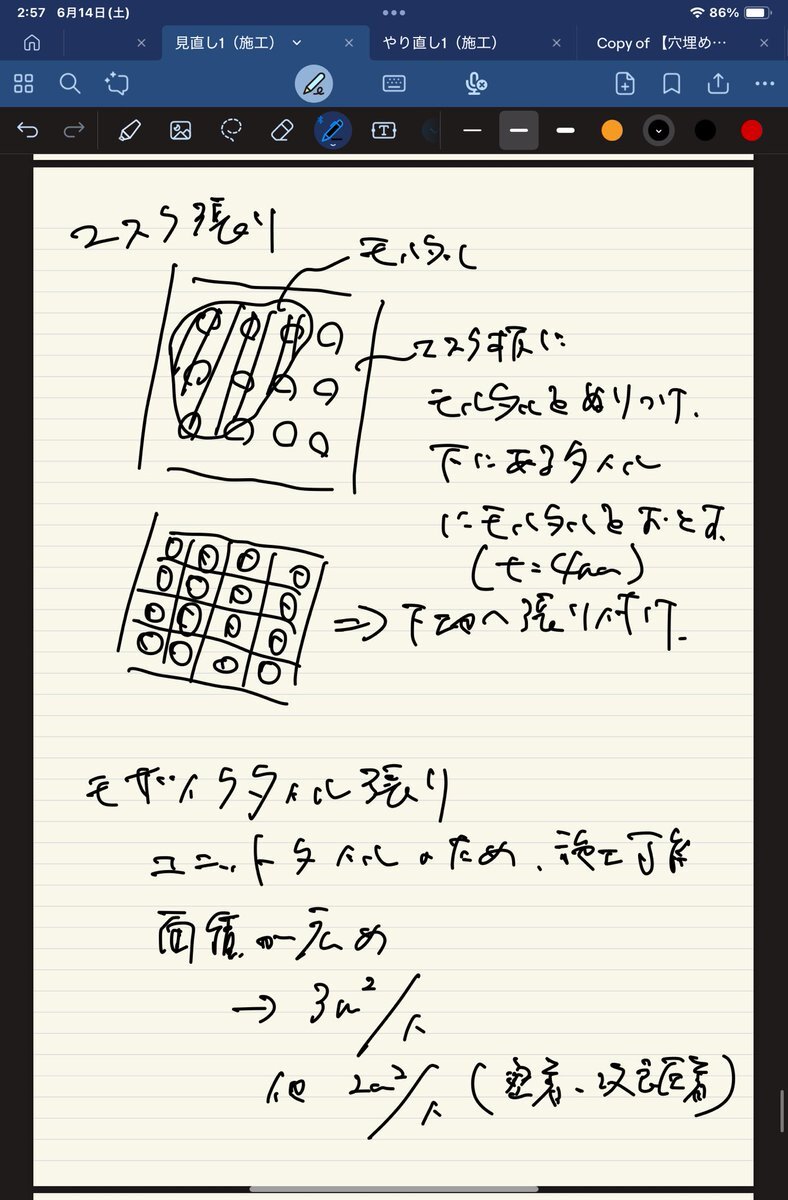 2:57 6月14日(土)
86%
見直し1（施工）
やり直し1（施工）
Copy of 【穴埋め…
マスク張り
モルタル
マスク板に
モルタルをぬりつけ、
下にあるタイル
にモルタルをおとす。
(t=4mm)
⇒下地へ張り付け。
モザイクタイル張り
ユニットタイルのため、施工可能
面積が広め
→ 3m²/人
他 2m²/人 (密着、改良圧着)